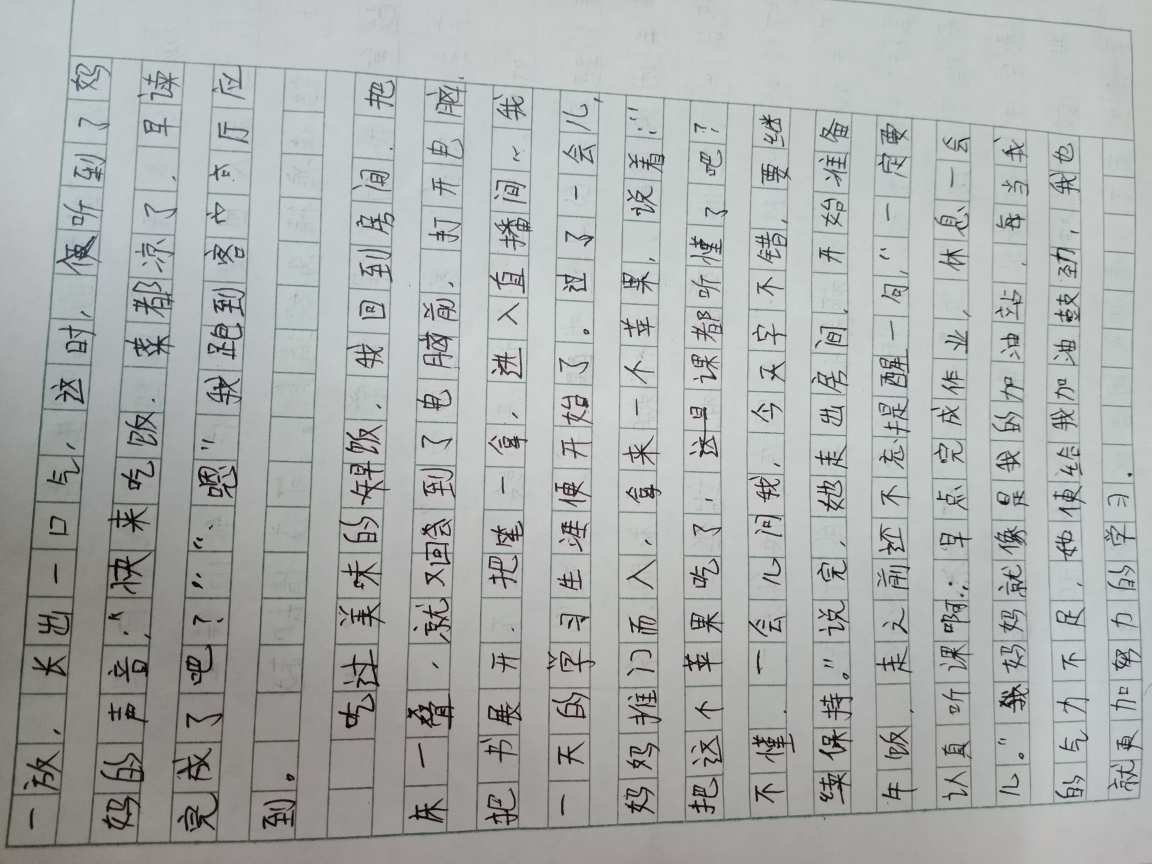 一放，长出一口气，这时，便听到了妈
妈的声音，“快来吃饭，菜都凉了，早读
完成了吧？”“嗯”我跑到客厅应
到。
吃过美味的早饭，我回到房间，把
床一叠，就又回到了电脑前，打开电脑，
把书展开，把笔一拿，进入直播间，我
一天的学习生涯便开始了。过了一会儿，
妈妈推门而入，拿来一个苹果，说着：“
把这个苹果吃了，这课都听懂了吧？
不懂，一会儿问我，今天字不错，要继
续保持。”说完，她走出房间，开始准备
午饭，走之前还不忘提醒一句，“一定要
认真听课啊，早点完成作业，休息一会
儿。”我妈妈就像是我的加油站，每当我
的气力不足，她便给我加油鼓劲，我也
就更加努力的学习。